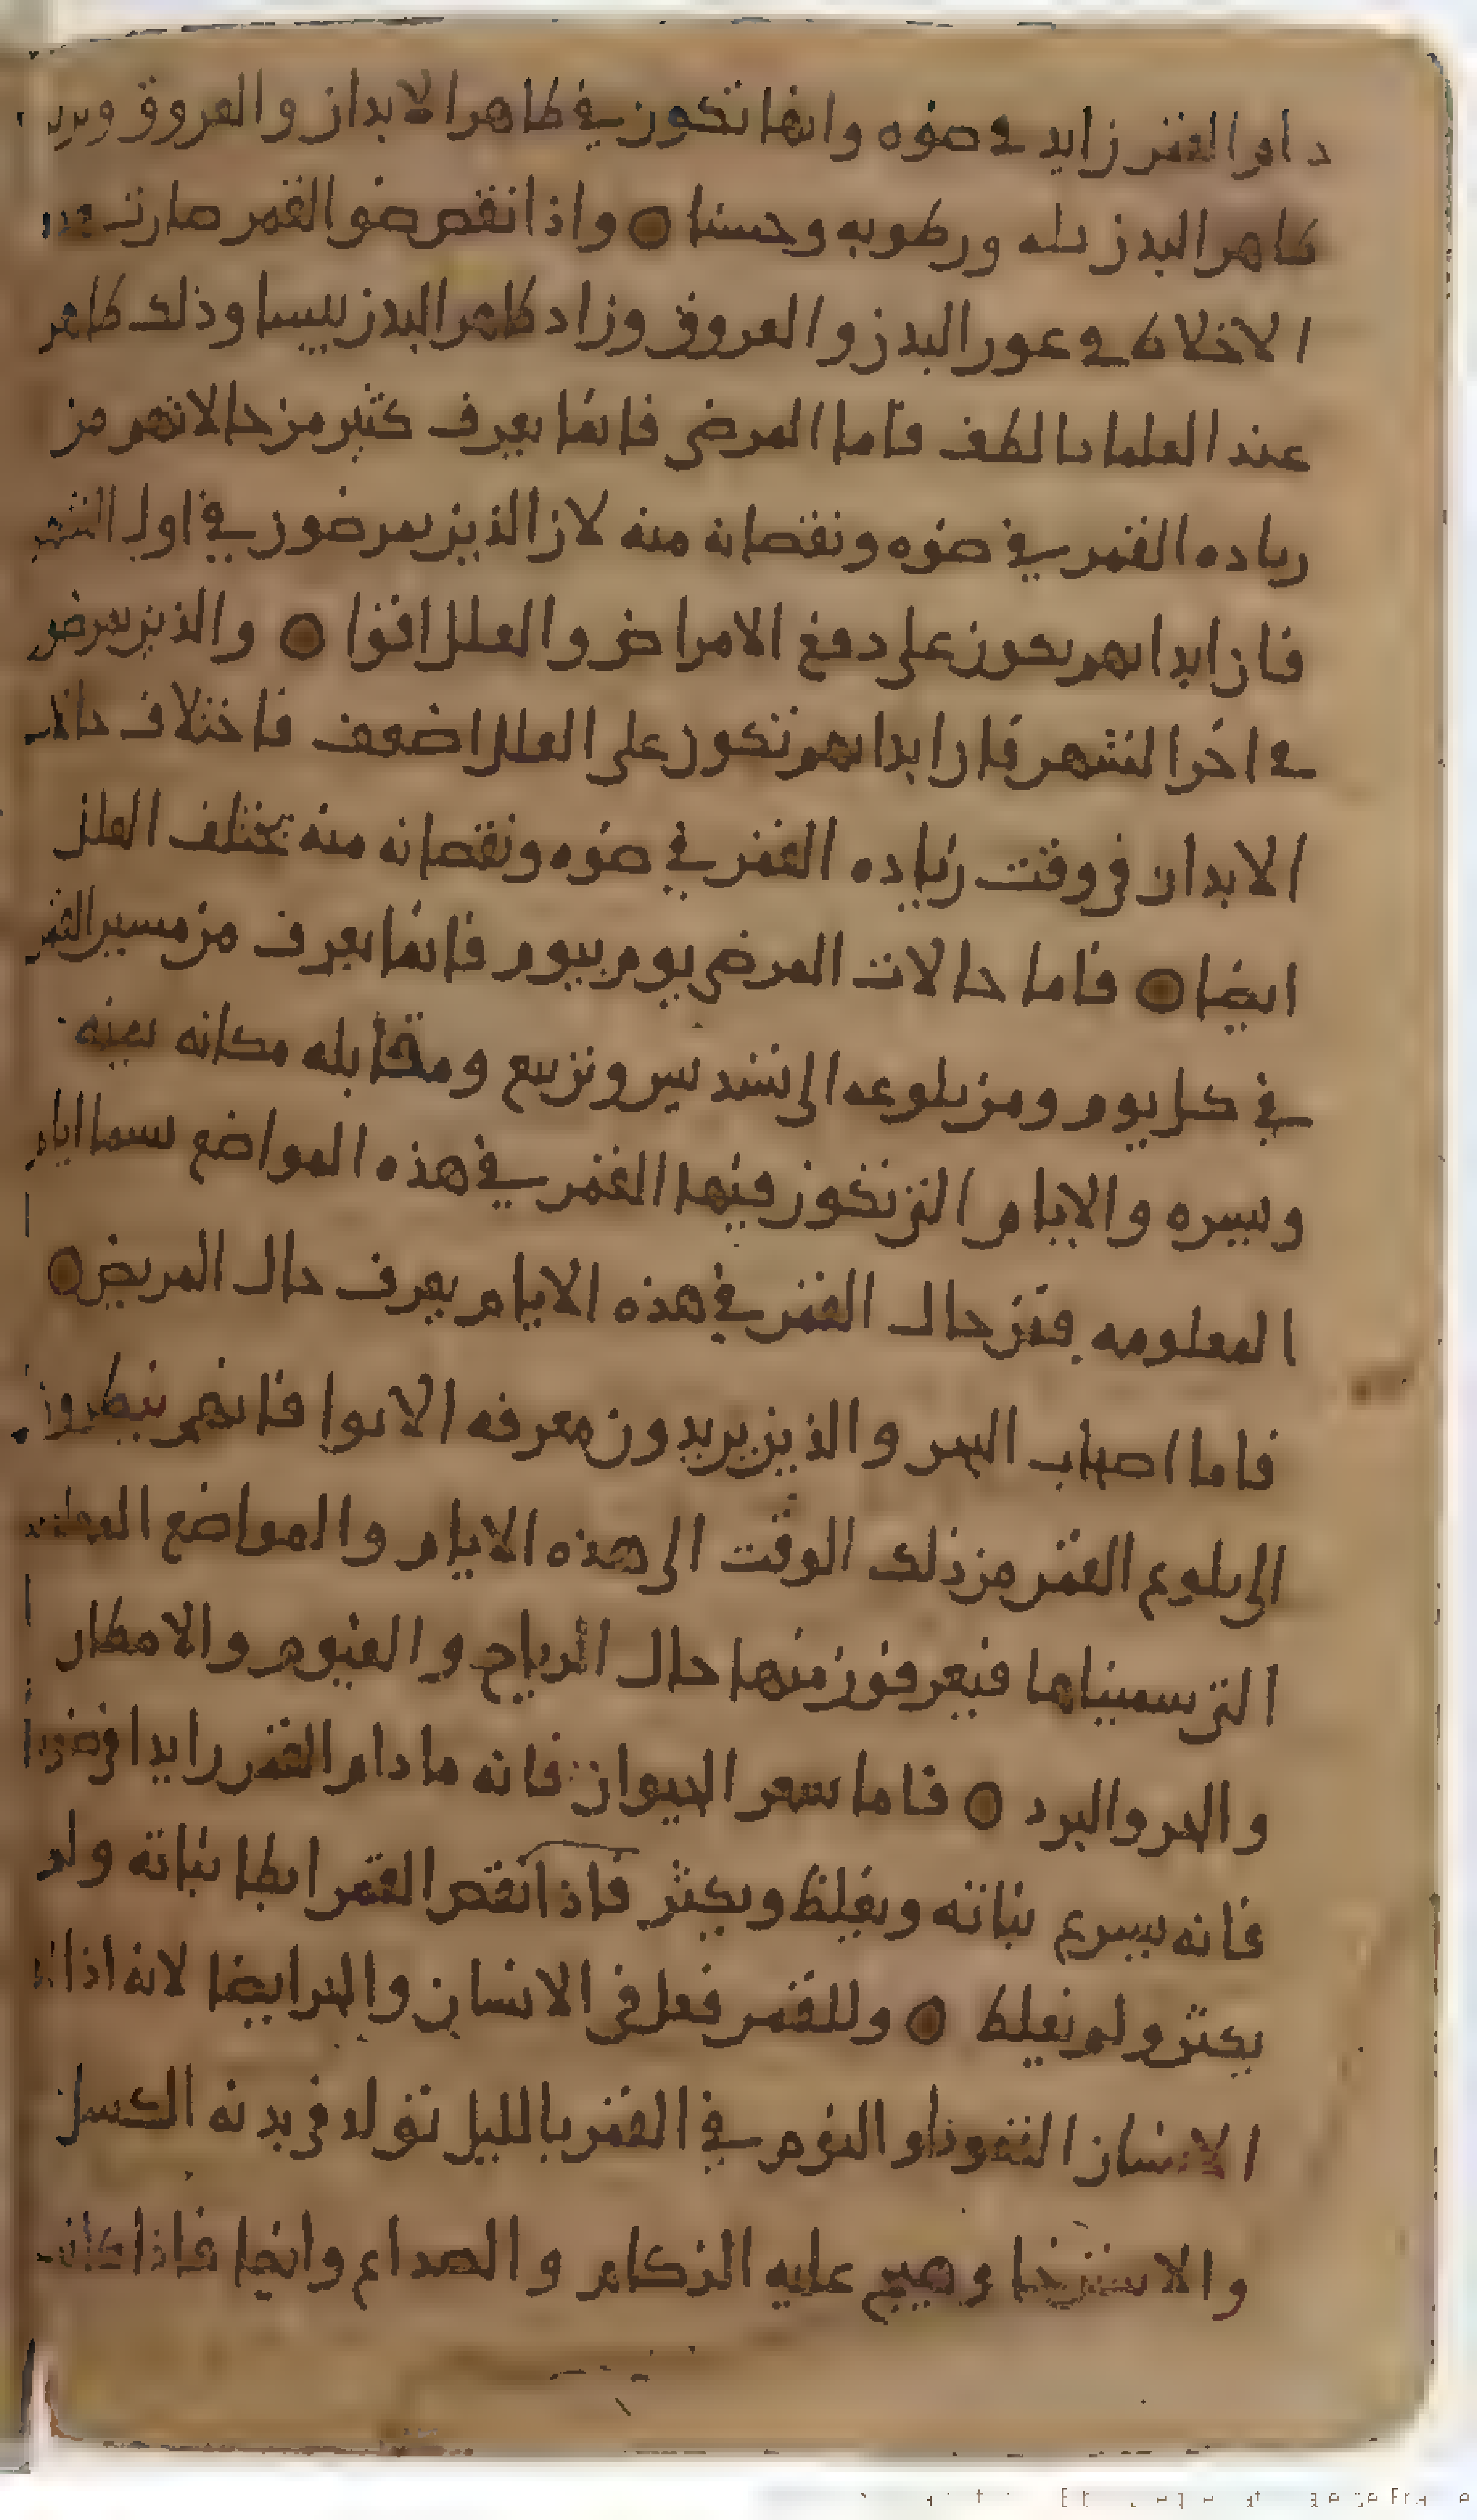 دام القمر زايد في ضوه وانها تكون في ظاهر الابدان والعروق ويزيد
ظاهر البدن بله ورطوبه وحسنا ○ واذا نقص ضو القمر صارت هذه
الاخلاط في غور البدن والعروق وزاد ظاهر البدن يبسا وذلك ظاهر
عند العلما بالطف فاما المرضى فانما يعرف كثير من حالاتهم من
زياده القمر في ضوه ونقصانه منه لان الذين يمرضون في اول الشهر
فان ابدانهم تكون على دفع الامراض والعلل اقوا ○ والذين يمرضون
في اخر الشهر فان ابدانهم تكون على العلل اضعف فاختلاف حالات
الابدان في وقت زياده القمر في ضوه ونقصانه منه يختلف العلل
ايضا ○ فاما حالات المرضى يوم بيوم فانما يعرف من مسير القمر
في كل يوم ومن بلوغه الى تسديس وتربيع ومقابله مكانه بعينه
وسيره والايام التي تكون فيها القمر في هذه المواضع تسما ايام
المعلومه فمن حال القمر في هذه الايام يعرف حال المريض ○
فاما اصحاب البحر والذين يريدون معرفه الانوا فانهم ينظرون
الى بلوغ القمر من ذلك الوقت الى هذه الايام والمواضع
التي سميناها فيعرفون منها حال الرياح والغيوم والامطار
والحر والبرد ○ فاما شعر الحيوان فانه ما دام القمر زايدا في ضوه
فانه يسرع نباته ويغلظ ويكثر فاذا نقص القمر ابطا نباته ولم
يكثر ولم يغلظ ○ وللقمر فعل في الانسان والحر ايضا لانه اذا
الانسان القعود او النوم في القمر بالليل تولد في بدنه الكسل
والاسترخا وهيج عليه الزكام والصداع وايضا فاذا كانت